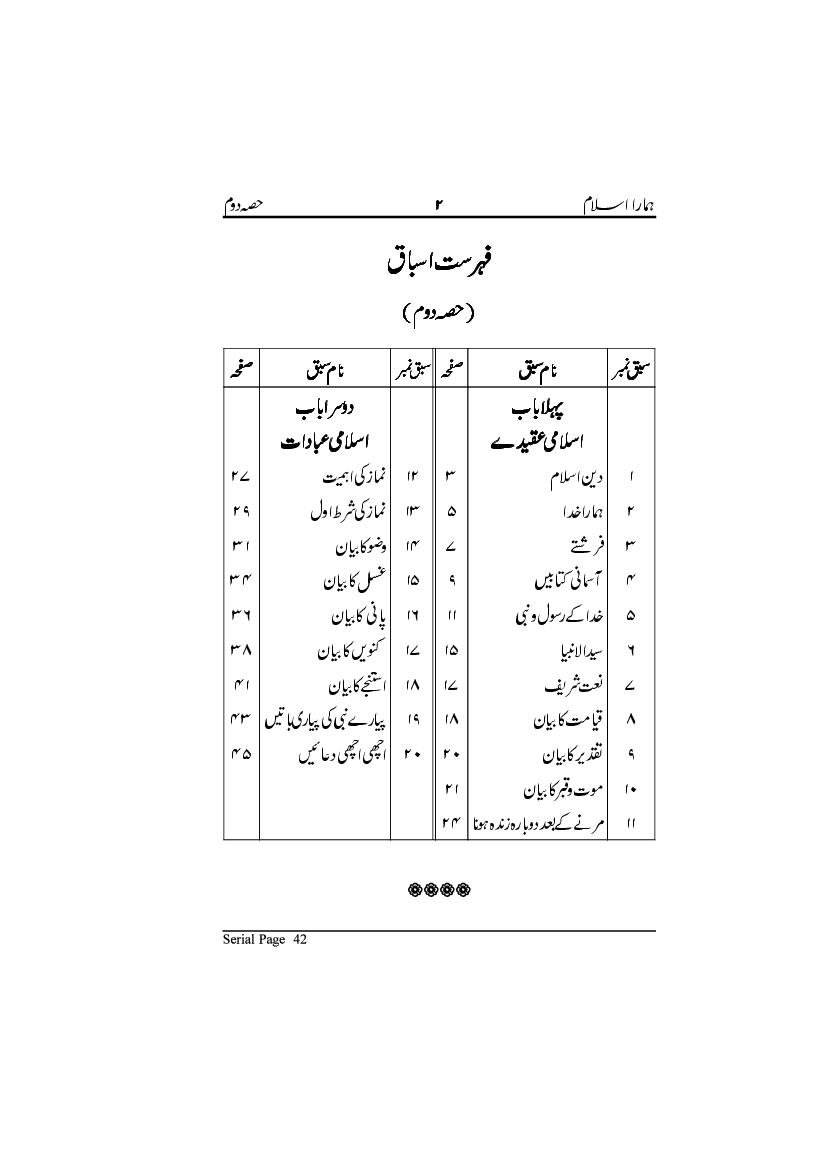 ہمارا اسلام ۲ حصہ دوم
فہرست اسباق
(حصہ دوم)
سبق نمبر نام سبق صفحہ سبق نمبر نام سبق صفحہ
پہلا باب دوسرا باب
اسلامی عقیدے اسلامی عبادات
۱ دین اسلام ۳ ۱۲ نماز کی اہمیت ۲۷
۲ ہمارا خدا ۵ ۱۳ نماز کی شرط اول ۲۹
۳ فرشتے ۷ ۱۴ وضو کا بیان ۳۱
۴ آسمانی کتابیں ۹ ۱۵ غسل کا بیان ۳۴
۵ خدا کے رسول و نبی ۱۱ ۱۶ پانی کا بیان ۳۶
۶ سید الانبیا ۱۵ ۱۷ کنویں کا بیان ۳۸
۷ نعت شریف ۱۷ ۱۸ استنجے کا بیان ۴۱
۸ قیامت کا بیان ۱۸ ۱۹ پیارے نبی کی پیاری باتیں ۴۳
۹ تقدیر کا بیان ۲۰ ۲۰ اچھی اچھی دعائیں ۴۵
۱۰ موت و قبر کا بیان ۲۱
۱۱ مرنے کے بعد دوبارہ زندہ ہونا ۲۴
Serial Page 42